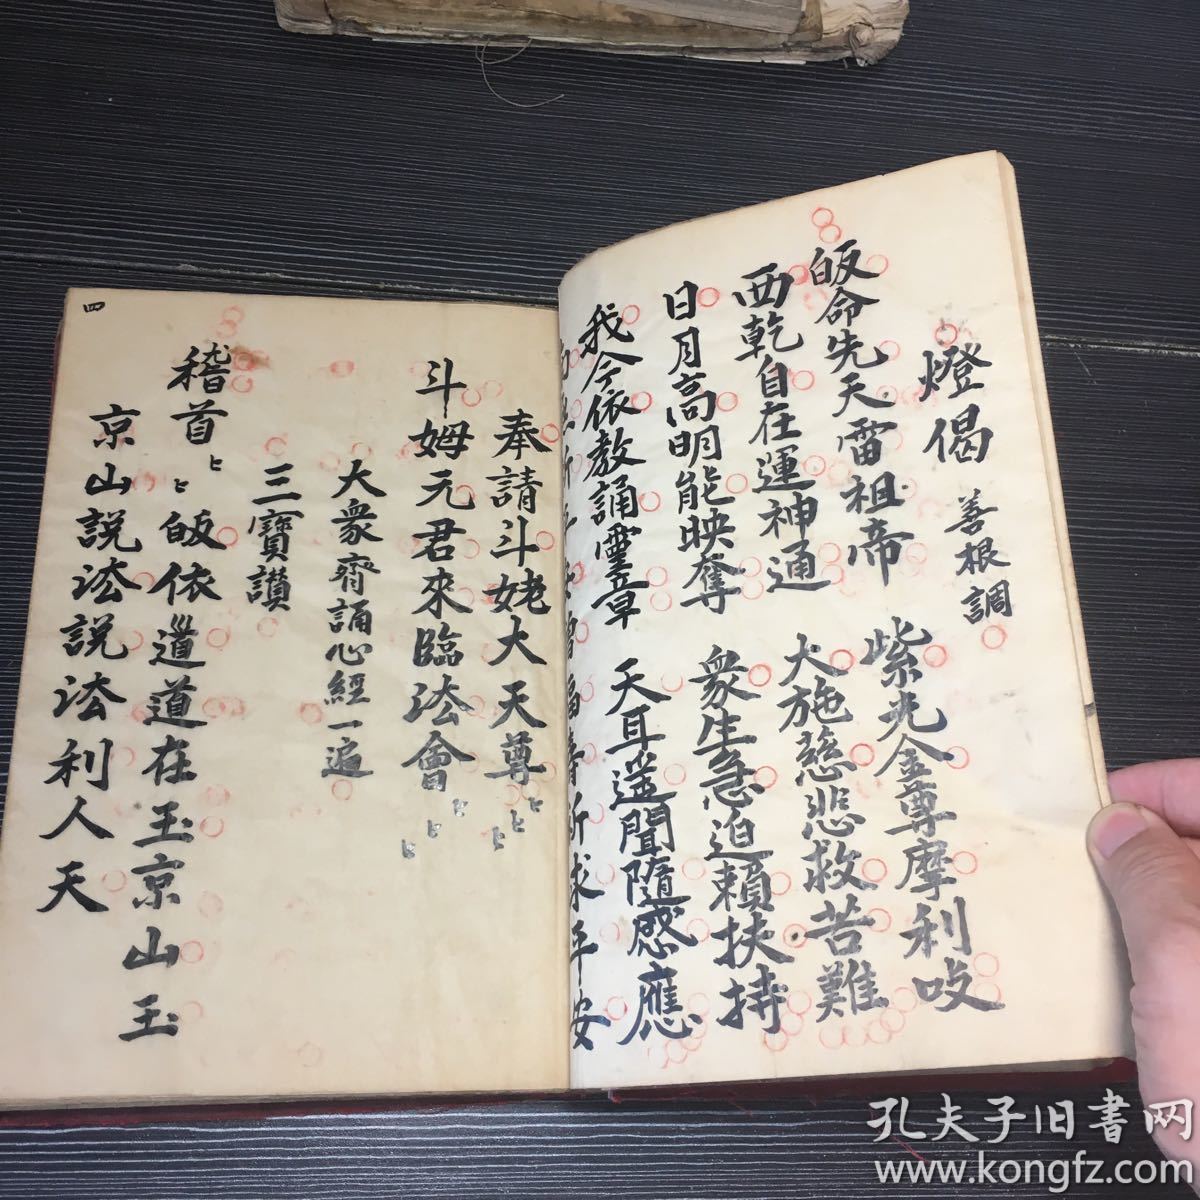 燈偈 善根調
皈命先天雷祖帝 紫光金尊摩利吱
西乾自在運神通 大施慈悲救苦難
日月高明能映奪 衆生急迫賴扶持
我今依教誦靈章 天耳遥聞隨感應
福壽所求平安
奉請斗姥大天尊
斗姆元君來臨法會
大衆齊誦心經一遍
三寶讃
稽首皈依道道在玉京山玉
京山説法説法利人天
四
孔夫子旧書网
www.kongfz.com